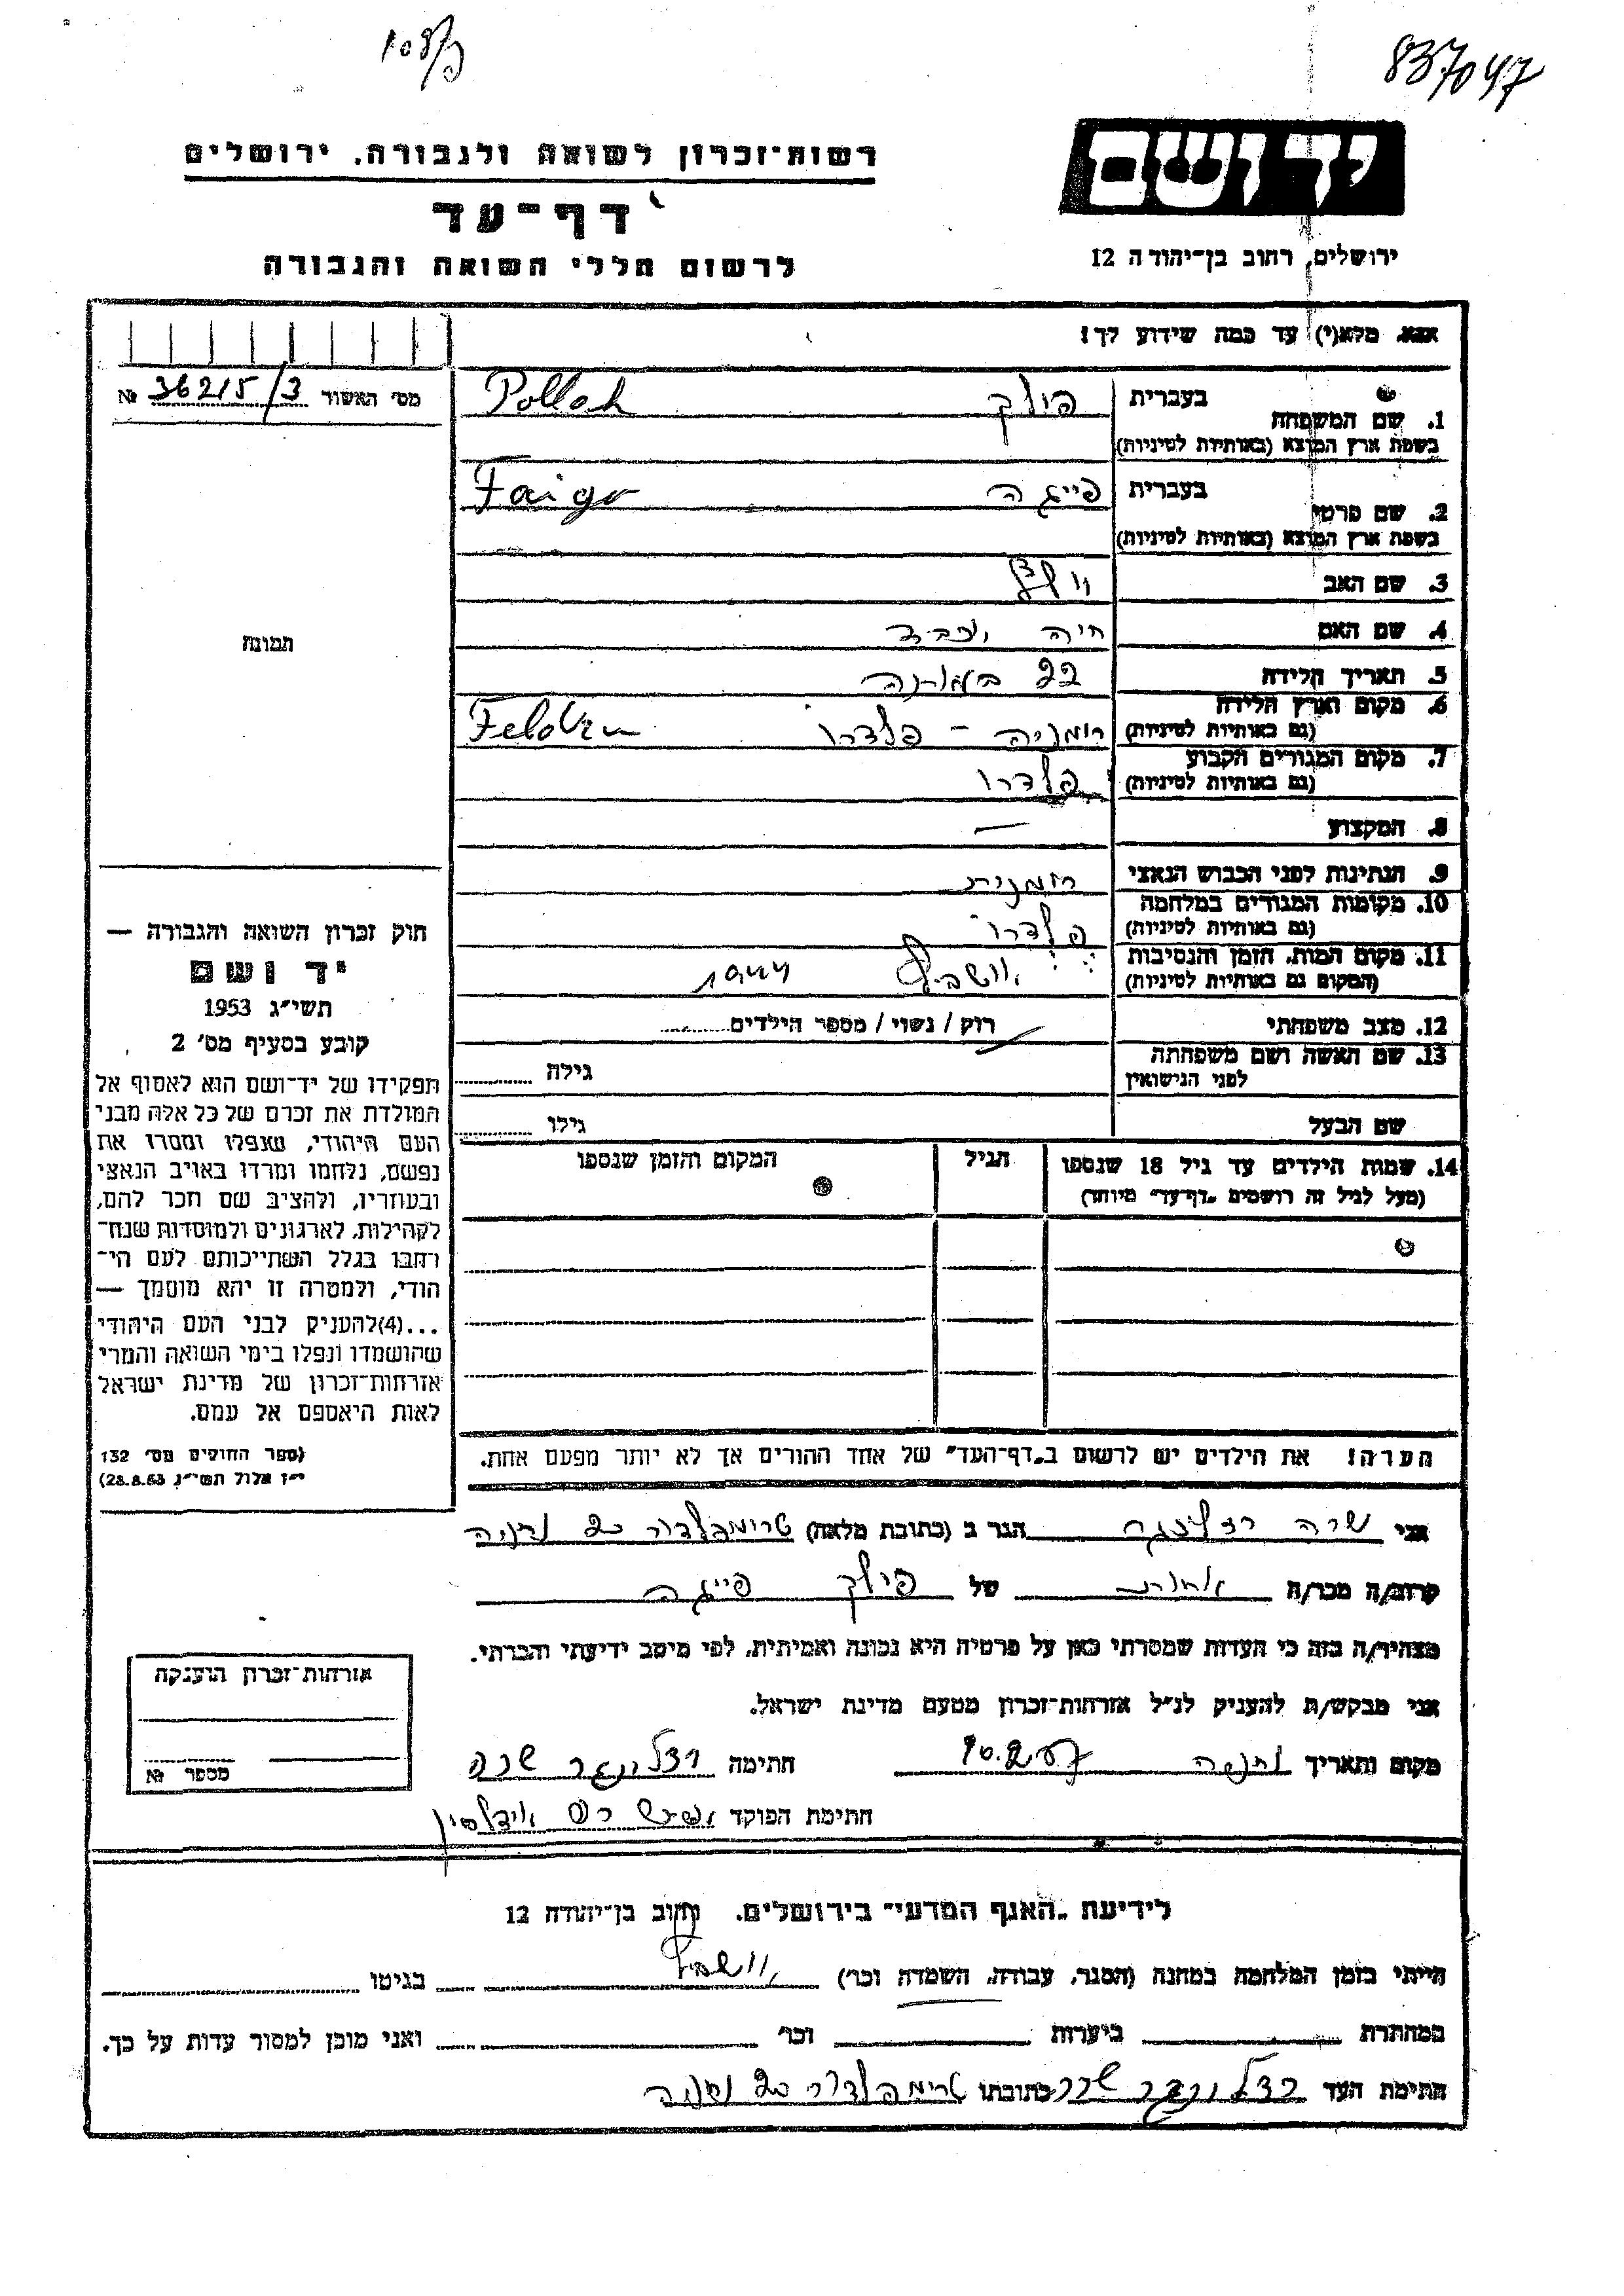 837047
רשות־זכרון לשואה ולגבורה, ירושלים
יד ושם
דף־עד
ירושלים, רחוב בן־יהודה 12
לרשום חללי השואה והגבורה
אנא, מלא(י) עד כמה שידוע לך!
מס׳ האשור 36215/3 №
תמונה
חוק זכרון השואה והגבורה —
יד ושם
תשי״ג 1953
קובע בסעיף מס׳ 2
תפקידו של יד־ושם הוא לאסוף אל
המולדת את זכרם של כל אלה מבני
העם היהודי, שנפלו ומסרו את
נפשם, נלחמו ומרדו באויב הנאצי
ובעוזריו, ולהציב שם וזכר להם,
לקהילות, לארגונים ולמוסדות שנח־
רבו בגלל השתייכותם לעם הי־
הודי, ולמטרה זו יהא מוסמך —
...(4)להעניק לבני העם היהודי
שהושמדו ונפלו בימי השואה והמרי
אזרחות־זכרון של מדינת ישראל
לאות היאספם אל עמם.
(ספר החוקים מס׳ 132
י״ז אלול תשי״ג 28.8.53)
בעברית פולק Pollak
1. שם המשפחה
בשפת ארץ המוצא (באותיות לטיניות)
בעברית פייגה Faige
2. שם פרטי
בשפת ארץ המוצא (באותיות לטיניות)
3. שם האב
4. שם האם חיה יוכבד
5. תאריך הלידה 22
6. מקום וארץ הלידה
(גם באותיות לטיניות) רומניה – פלדרו Feldru
7. מקום המגורים הקבוע
(גם באותיות לטיניות) פלדרו
8. המקצוע —
9. הנתינות לפני הכבוש הנאצי רומנית
10. מקומות המגורים במלחמה
(גם באותיות לטיניות) פלדרו
11. מקום המות, הזמן והנסיבות
(המקום גם באותיות לטיניות) אושביץ 1944
12. מצב משפחתי רוק / נשוי / מספר הילדים
13. שם האשה ושם משפחתה
לפני הנישואין גילה
שם הבעל גילו
14. שמות הילדים עד גיל 18 שנספו הגיל המקום והזמן שנספו
(מעל לגיל זה רושמים „דף־עד״ מיוחד)
הערה! את הילדים יש לרשום ב„דף־העד״ של אחד ההורים אך לא יותר מפעם אחת.
אני שרה רצלינגר הגר ב (כתובת מלאה) טרומפלדור נתניה
קרוב/ה מכר/ה אחות של פולק פייגה
מצהיר/ה בזה כי העדות שמסרתי כאן על פרטיה היא נכונה ואמיתית, לפי מיטב ידיעתי והכרתי.
אני מבקש/ת להעניק לנ״ל אזרחות־זכרון מטעם מדינת ישראל.
מקום ותאריך נתניה חתימה רצלינגר שרה
חתימת הפוקד
אזרחות־זכרון הוענקה
מספר №
לידיעת „האגף המדעי״ בירושלים. רחוב בן־יהודה 12
הייתי בזמן המלחמה במחנה (הסגר, עבודה, השמדה וכו׳) אושביץ בגיטו
במחתרת ביערות וכו׳ ואני מוכן למסור עדות על כך.
חתימת העד רצלינגר שרה כתובתו טרומפלדור נתניה